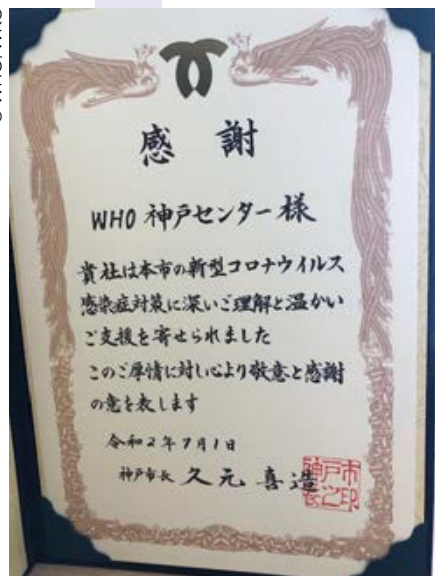 感謝
WHO 神戸センター 様
貴社は本市の新型コロナウイルス
感染症対策に深いご理解と温かい
ご支援を寄せられました
このご厚情に対し心より敬意と感謝
の意を表します
令和2年7月1日
神戸市長 久元喜造